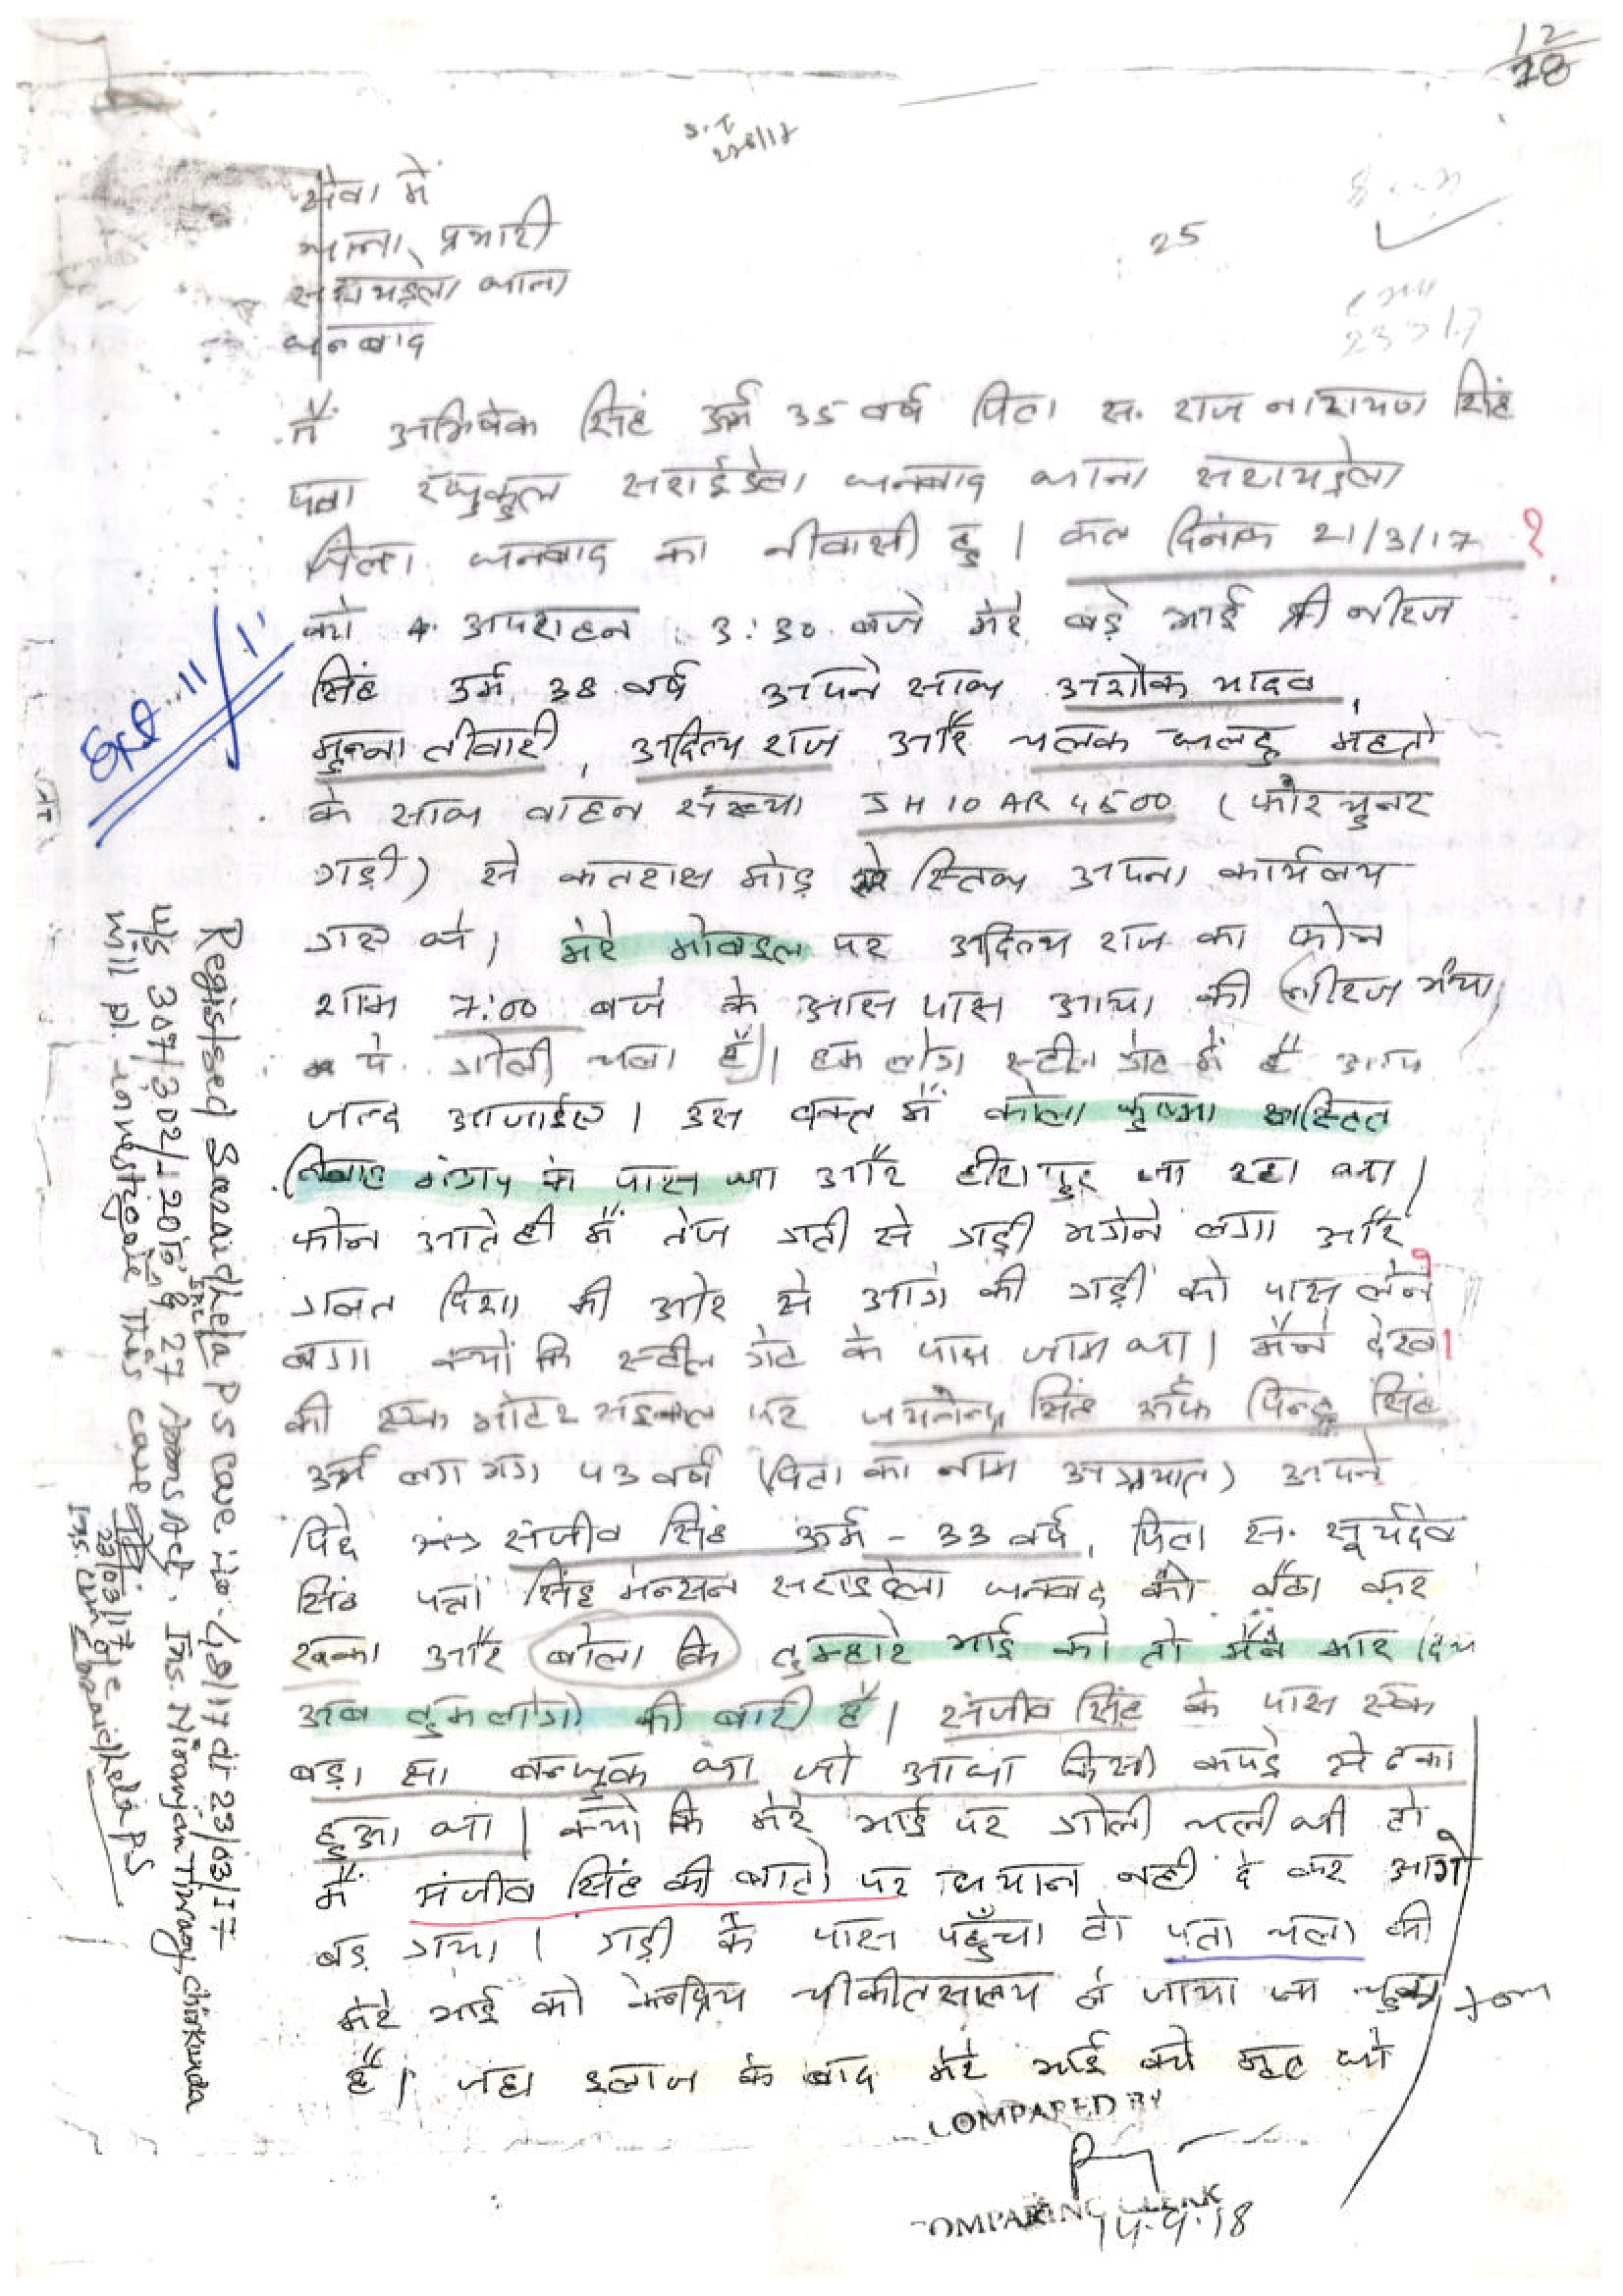 12/28
सेवा में
थाना प्रभारी
सरायढेला थाना
धनबाद
25
मैं अभिषेक सिंह उर्म 35 वर्ष पिता स. राज नारायण सिंह
पता रघुकुल सराईढेला धनबाद थाना सरायढेला
जिला धनबाद का नीवासी हु । कल दिनांक 21/3/17 ?
को अपराहन 3:30 बजे मेरे बड़े भाई श्री नीरज
सिंह उर्म 38 वर्ष अपने साथ अशोक यादव,
मुन्ना तीवारी, आदित्य राज और चलक घलटु महतो
के साथ वाहन संख्या JH 10 AR 4500 (फोरचुनर
गाड़ी) से कतरास मोड़ स्तिथ अपना कार्यलय
गए थे। मेरे मोबाइल पर आदित्य राज का फोन
शाम 7:00 बजे के आस पास आया की (नीरज भैया
पे गोली चला है)। हम लोग स्टील गेट में है आप
जल्द आजाईए । उस वक्त मैं कोला कुष्मा स्तित
विवाह मंडप के पास था और हीरापुर जा रहा था।
फोन आते ही मैं तेज गती से गाड़ी भगाने लगा और
गलत दिशा की ओर से आगे की गाड़ी को पास लेने
लगा क्यों कि स्टील गेट के पास जाम था। मैंने देखा
की एक मोटर साइकल पर जयनेन्द्र सिंह उर्फ पिन्टू सिंह
उर्म लग भग 43 वर्ष (पिता का नाम अज्ञात) अपने
पिछे संजीव सिंह उर्म - 33 वर्ष, पिता स. सूर्यदेव
सिंह पता सिंह मेन्सन सराइढेला धनबाद को बैठा कर
रखा और बोला कि तुम्हारे भाई को तो मैंने मार दिया
अब तुमलोगो की बारी है। संजीव सिंह के पास एक
बड़ा सा बन्दूक था जो आधा किसी कपड़े से ढका
हुआ था। क्यो कि मेरे भाई पर गोली चली थी तो
मैं संजीव सिंह की बातो पर धियान नही दे कर आगे
बड़ गया। गाड़ी के पास पहुँचा तो पता चला की
मेरे भाई को केन्द्रिय चीकीतसालय ले जाया जा चुका
है। जहा इलाज के बाद मेरे भाई को मृत घो
Ext 11/1
Registered Saraidhela PS case no. 48/17 dt 23/03/17
u/s 307/302/120(B) IPC & 27 Arms Act. Ins. Niranjan Tiwary, Chirkunda
will pl. investigate this case
23/03/17
Ins. cum O/c
Saraidhela PS
COMPARED BY
COMPARING CLERK
14.9.18